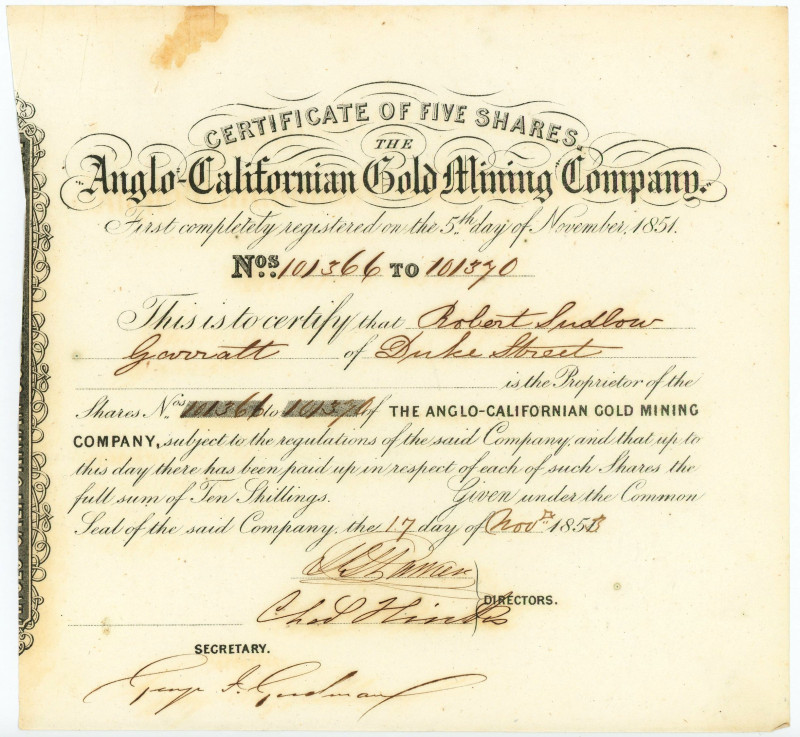 CERTIFICATE OF FIVE SHARES.
THE
Anglo-Californian Gold Mining Company.
First completely registered on the 5th day of November, 1851.
Nos. 101366 TO 101370
This is to certify that Robert Sudlow
Garratt of Duke Street
is the Proprietor of the
Shares Nos 101366 to 101370 of THE ANGLO-CALIFORNIAN GOLD MINING
COMPANY, subject to the regulations of the said Company, and that up to
this day there has been paid up in respect of each of such Shares the
full sum of Ten Shillings. Given under the Common
Seal of the said Company, the 17 day of Novr. 1853
DIRECTORS.
Chas Hincks
SECRETARY.
George J. Goodman